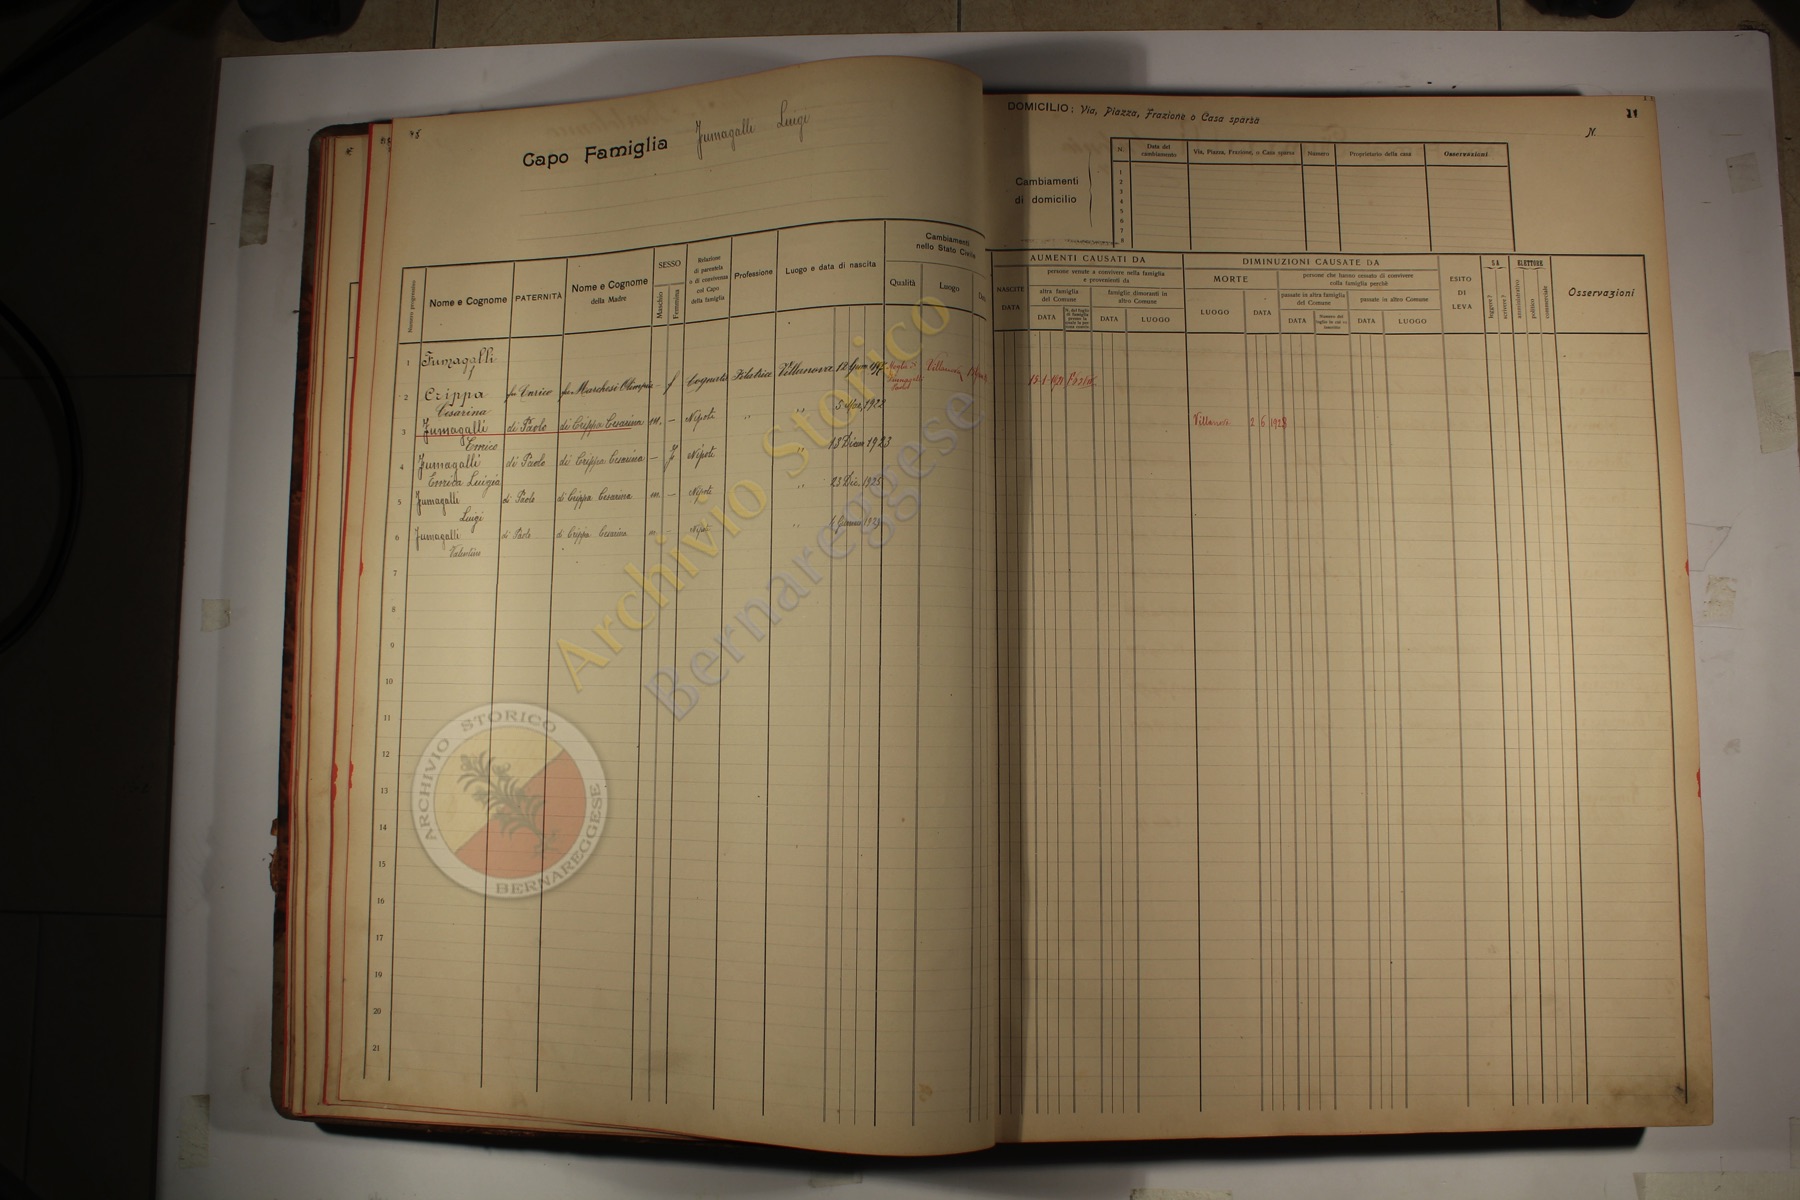 45
Capo Famiglia Fumagalli Luigi
DOMICILIO: Via, Piazza, Frazione o Casa sparsa
N.
Cambiamenti di domicilio
N. Data del cambiamento Via, Piazza, Frazione, o Casa sparsa Numero Proprietario della casa Osservazioni
1
2
3
4
5
6
7
8
Numero progressivo Nome e Cognome PATERNITÀ Nome e Cognome della Madre SESSO Maschio Femmina Relazione di parentela o di convivenza col Capo della famiglia Professione Luogo e data di nascita Cambiamenti nello Stato Civile Qualità Luogo
NASCITE DATA
AUMENTI CAUSATI DA
persone venute a convivere nella famiglia e provenienti da
altra famiglia del Comune DATA
famiglie dimoranti in altro Comune DATA LUOGO
DIMINUZIONI CAUSATE DA
MORTE LUOGO DATA
persone che hanno cessato di convivere colla famiglia perchè
passate in altra famiglia del Comune DATA
passate in altro Comune DATA LUOGO
ESITO DI LEVA
SA leggere? scrivere?
ELETTORE amministrativo politico commerciale
Osservazioni
1 Fumagalli
2 Crippa Cesarina fu Enrico fu Marchesi Olimpia - f Cognata Filatrice Villanova
Villanova
3 Fumagalli Enrico di Paolo di Crippa Cesarina m. - Nipoti " " 5 Mar 1922 Villanova 2 6 1928
4 Fumagalli Enrica Luigia di Paolo di Crippa Cesarina - f Nipoti " 13 Dicem 1923
5 Fumagalli Luigi di Paolo di Crippa Cesarina m. - Nipoti " 23 Dic. 1925
6 Fumagalli Valentino di Paolo di Crippa Cesarina m. - Nipoti "
7
8
9
10
11
12
13
14
15
16
17
18
19
20
21
Archivio Storico
Bernareggese
ARCHIVIO STORICO
BERNAREGGESE